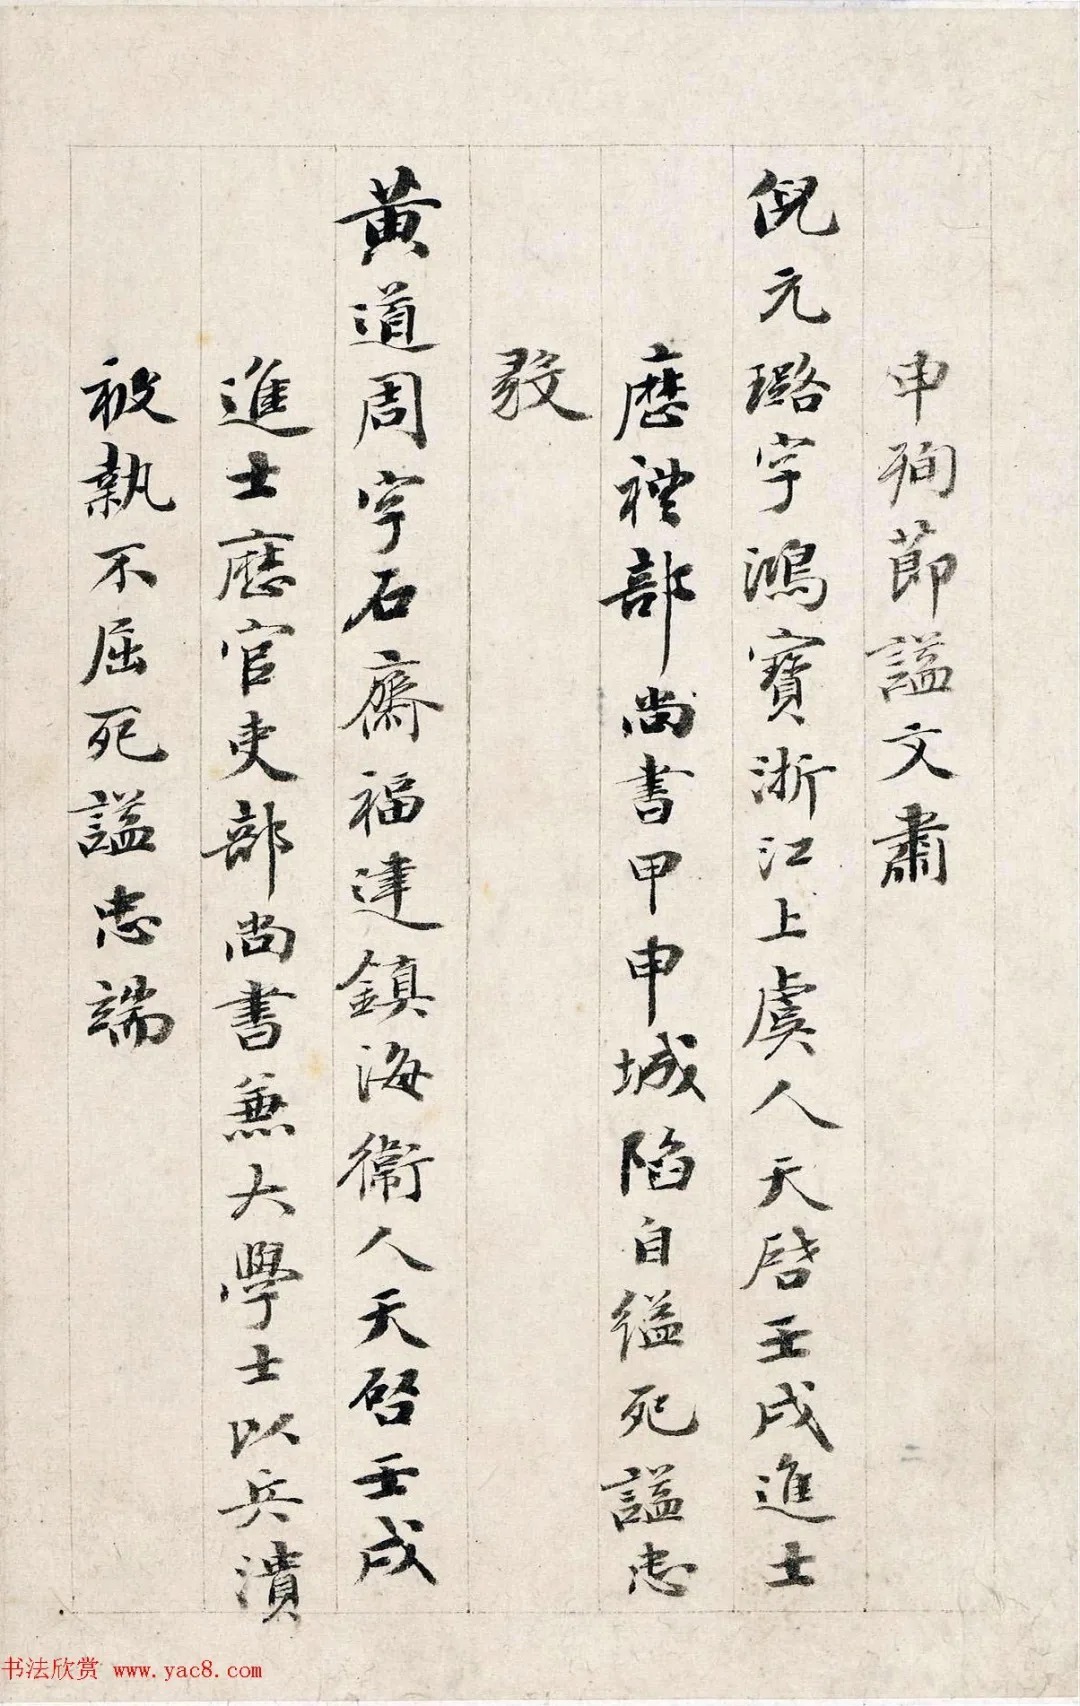 申殉節謚文肅
倪元璐字鴻寶浙江上虞人天啓壬戌進士
歷禮部尚書甲申城陷自縊死謚忠
黄道周字石齋福建鎮海衞人天啓壬戌
進士歷官吏部尚書兼大學士以兵潰
被執不屈死謚忠端
书法欣赏 www.yac8.com